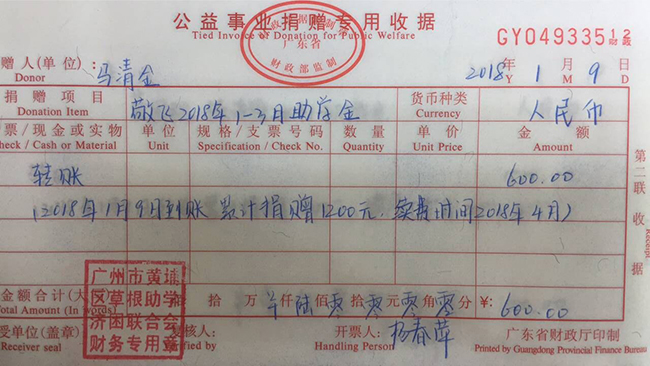 公益事业捐赠专用收据
Tied Invoice of Donation for Public Welfare
广东省
财政部监制
GY04933512
财政
赠人(单位): 马清金
Donor
2018年1月9日
Y M D
捐赠项目 敬飞2018年1-3月助学金 货币种类 人民币
Donation Item Currency
票/现金或实物 单位 规格/支票号码 数量 单价 金额
heck / Cash or Material Unit Specification / Check No. Quantity Unit Price Amount
转账 600.00
(2018年1月9日到账 累计捐赠1200元. 续费时间2018年4月)
第二联 收据
金额合计(大 拾万 仟陆佰零拾零元零角零分 ¥: 600.00
Total Amount (In words)
广州市黄埔
区草根助学
济困联合会
财务专用章
受单位(盖章) 复核人: 开票人: 杨春萍 广东省财政厅印制
Receiver seal Verified by Handling Person Printed by Guangdong Provincial Finance Bureau